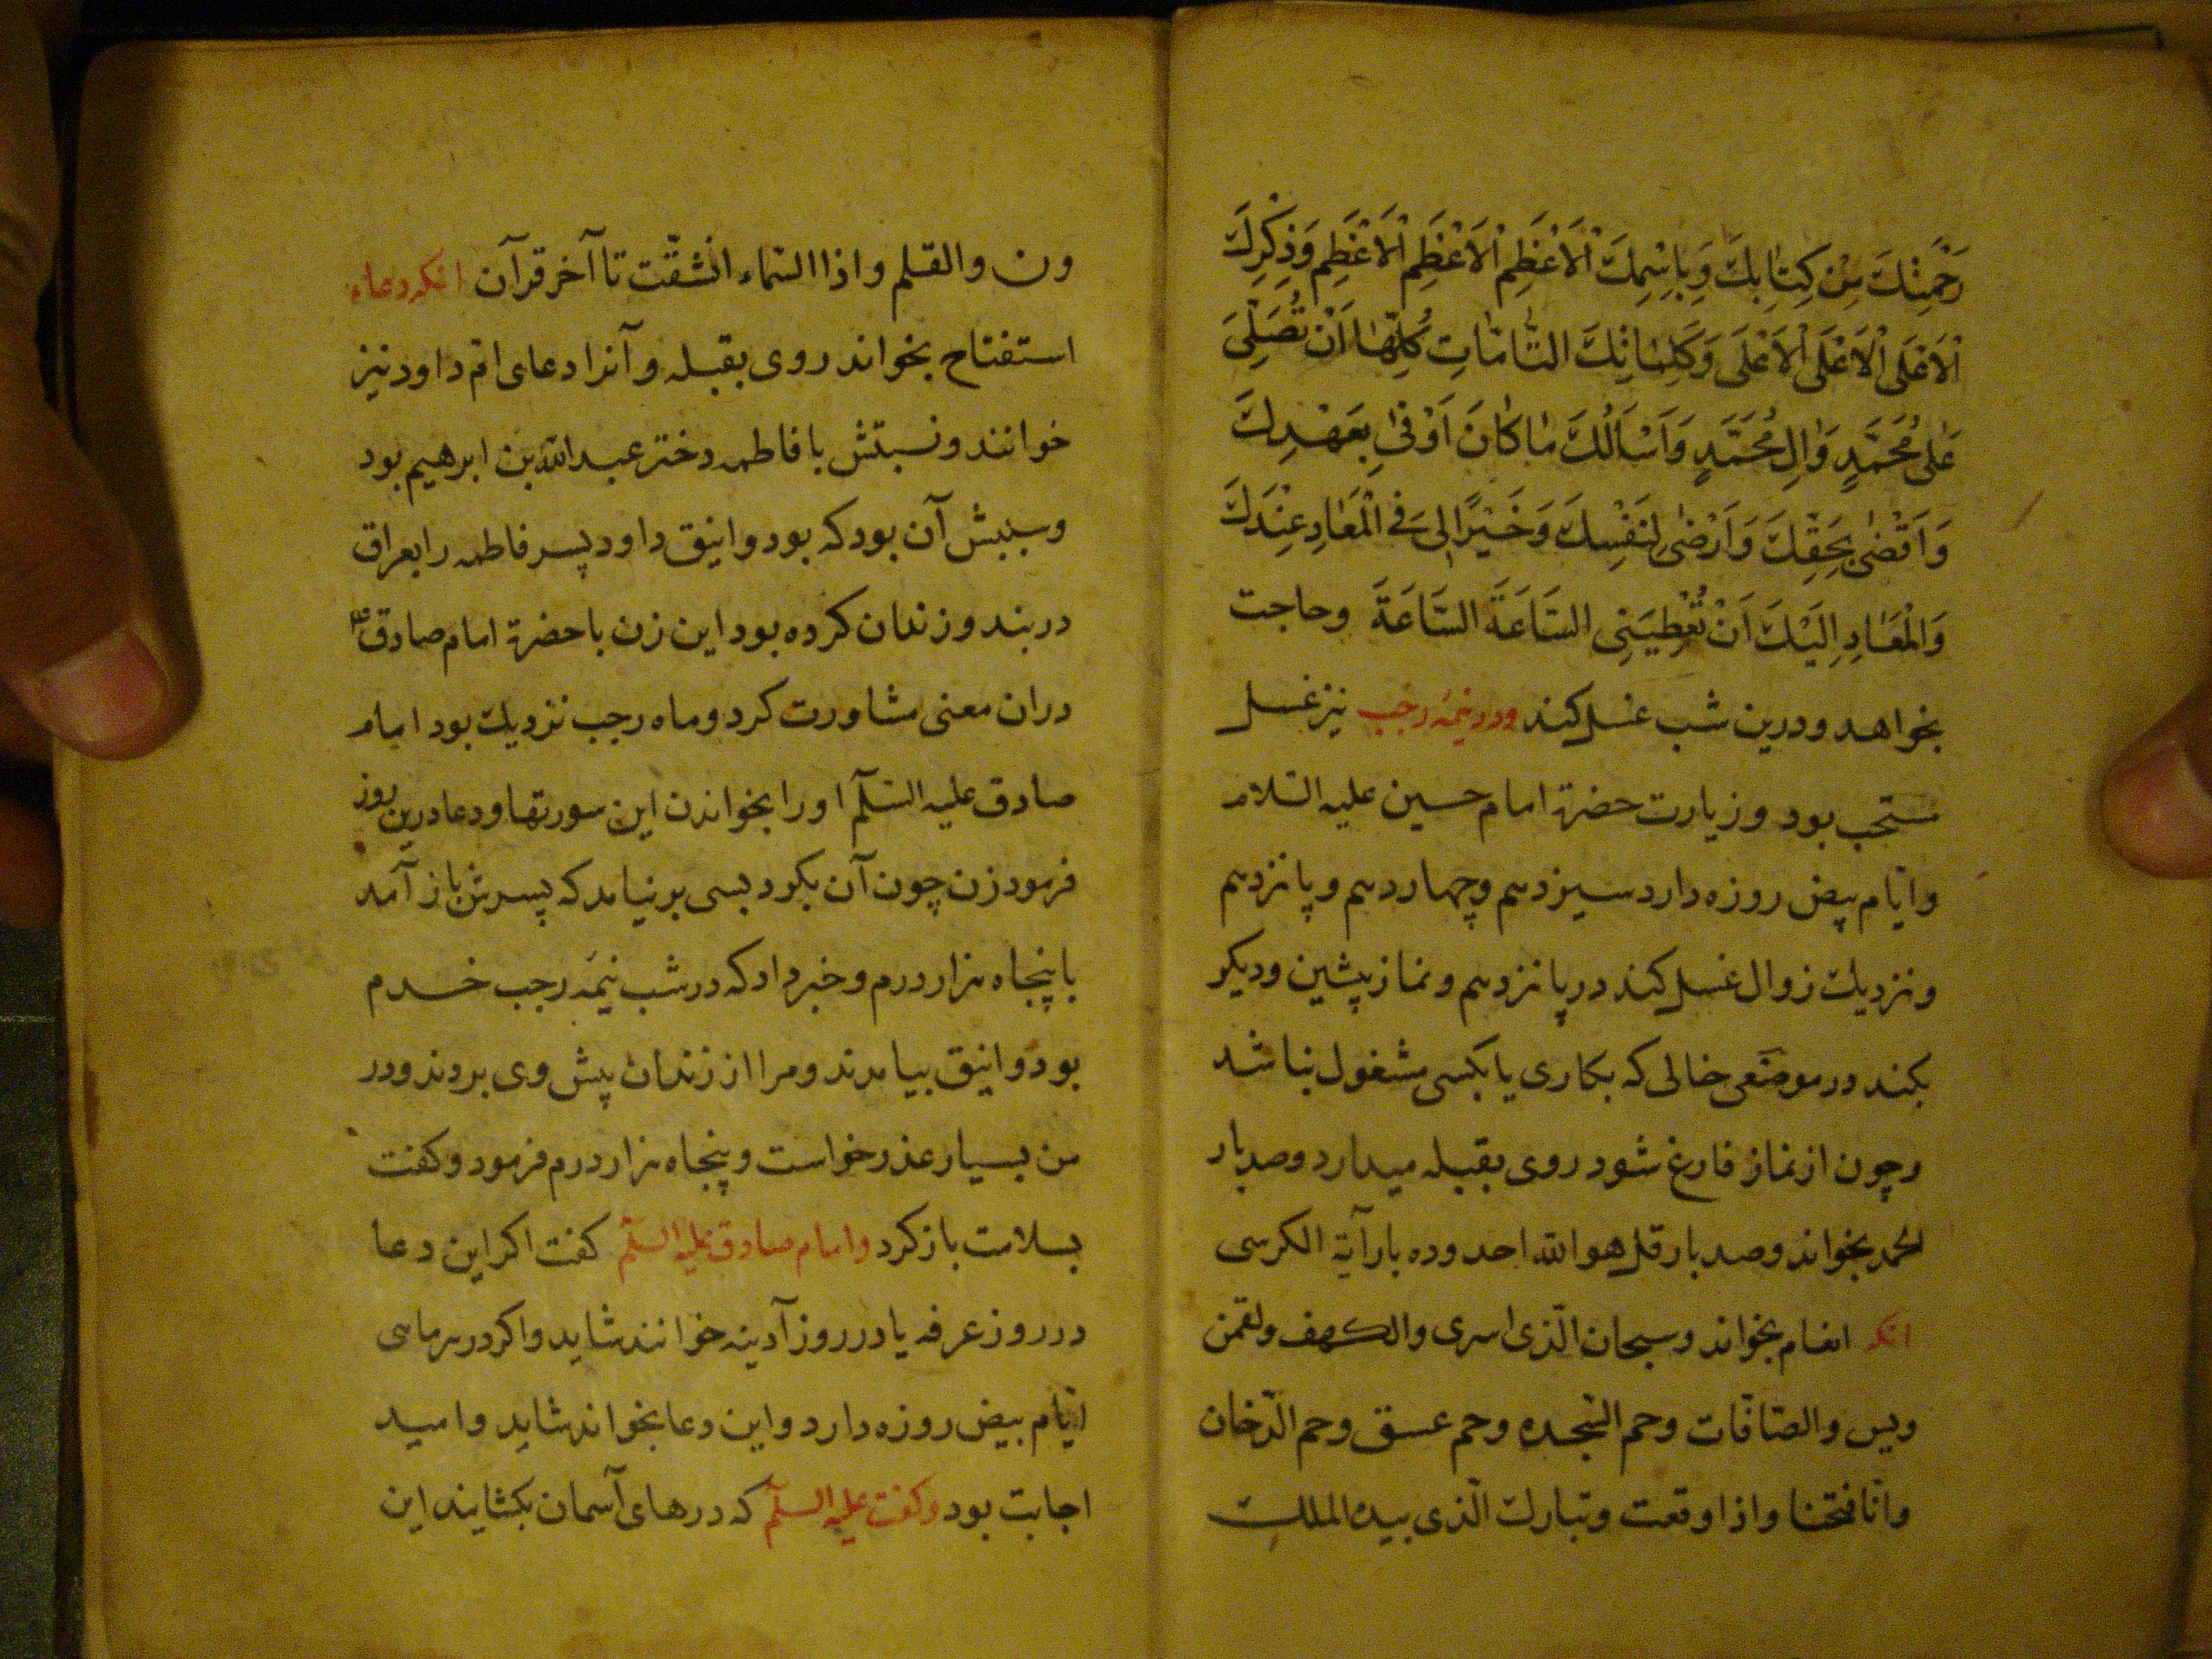 رَحْمَتِكَ مِنْ كِتَابِكَ وَبِاسْمِكَ الْاَعْظَمِ الْاَعْظَمِ الْاَعْظَمِ وَذِكْرِكَ
الْاَعْلَى الْاَعْلَى الْاَعْلَى وَكَلِمَاتِكَ التَّامَّاتِ كُلِّهَا اَنْ تُصَلِّىَ
عَلٰى مُحَمَّدٍ وَاٰلِ مُحَمَّدٍ وَاَسْاَلُكَ مَا كَانَ اَوْفٰى بِعَهْدِكَ
وَاَقْضٰى بِحَقِّكَ وَاَرْضٰى لِنَفْسِكَ وَخَيْرًا لِى فِى الْمَعَادِ عِنْدَكَ
وَالْمَعَادِ اِلَيْكَ اَنْ تُعْطِيَنِى السَّاعَةَ السَّاعَةَ وحاجت
بخواهد ودرين شب غسل كند ودر نيمۀ رجب نيز غسل
مستحب بود وزيارت حضرة امام حسين عليه السلام
وايّام بيض روزه دارد سيزدهم وچهاردهم وپانزدهم
ونزديك زوال غسل كند در پانزدهم ونماز پيشين وديكر
بكند در موضعى خالى كه بكارى يا بكسى مشغول نباشد
وچون از نماز فارغ شود روى بقبله ميدارد وصد بار
الحمد بخواند وصد بار قل هو الله احد وده بار آية الكرسى
انكه انعام بخواند وسبحان الّذى اسرى والكهف ولقمن
ويس والصّافّات وحم السّجده وحم عسق وحم الدّخان
وانّا فتحنا واذا وقعت وتبارك الّذى بيده الملك
ون والقلم واذا السّماء انشقّت تا آخر قرآن انكه دعاء
استفتاح بخواند روى بقبله وآنرا دعاى امّ داود نيز
خوانند ونسبتش با فاطمه دختر عبد الله بن ابرهيم بود
وسببش آن بود كه بود وانيق داود پسر فاطمه را بعراق
دربند وزندان كرده بود اين زن با حضرة امام صادق
دران معنى مشاورت كرد وماه رجب نزديك بود امام
صادق عليه السّلم اورا بخواندن اين سورتها ودعا درين روز
فرمود زن چون آن بكرد بسى برنيامد كه پسرش باز آمد
با پنجاه هزار درم وخبر داد كه در شب نيمۀ رجب خدم
بود وانيق بيامدند ومرا از زندان پيش وى بردند ودر
من بسيار عذر خواست وپنجاه هزار درم فرمود وكفت
بسلامت باز كرد وامام صادق عليه السّلم كفت اكر اين دعا
در روز عرفه يا در روز آدينه خوانند شايد واكر در هر ماهى
ايّام بيض روزه دارد واين دعا بخواند شايد واميد
اجابت بود وكفت عليه السّلم كه درهاى آسمان بكشايند اين